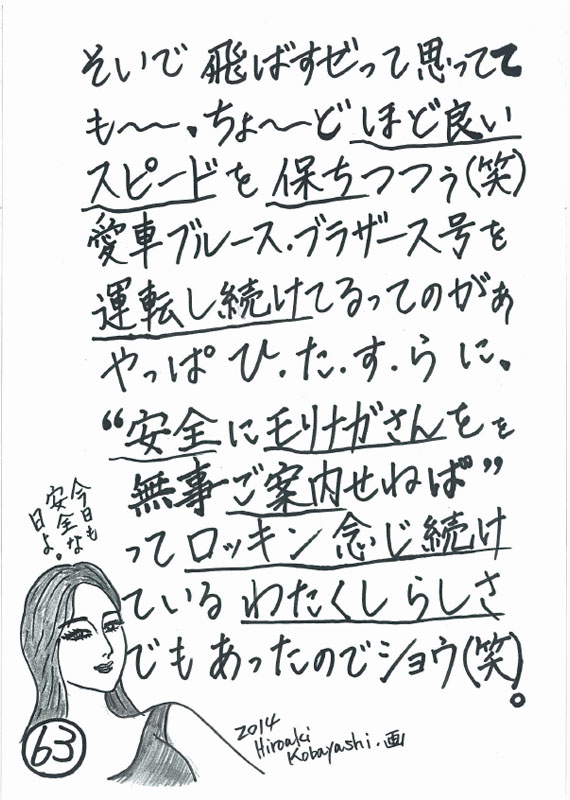 そいで 飛ばすぜって思ってて
も〜〜、ちょ〜〜どほど良い
スピードを保ちつつぅ(笑)
愛車ブルース.ブラザース号を
運転し続けてるってのがぁ
やっぱ ひ.た.す.ら に、
“安全にモリナガさんをを
無事ご案内せねば”
ってロッキン念じ続け
ている わたくしらしさ
でもあったのでショウ(笑)。
今日も
安全な
日よ。
63
2014
Hiroaki
Kobayashi.画